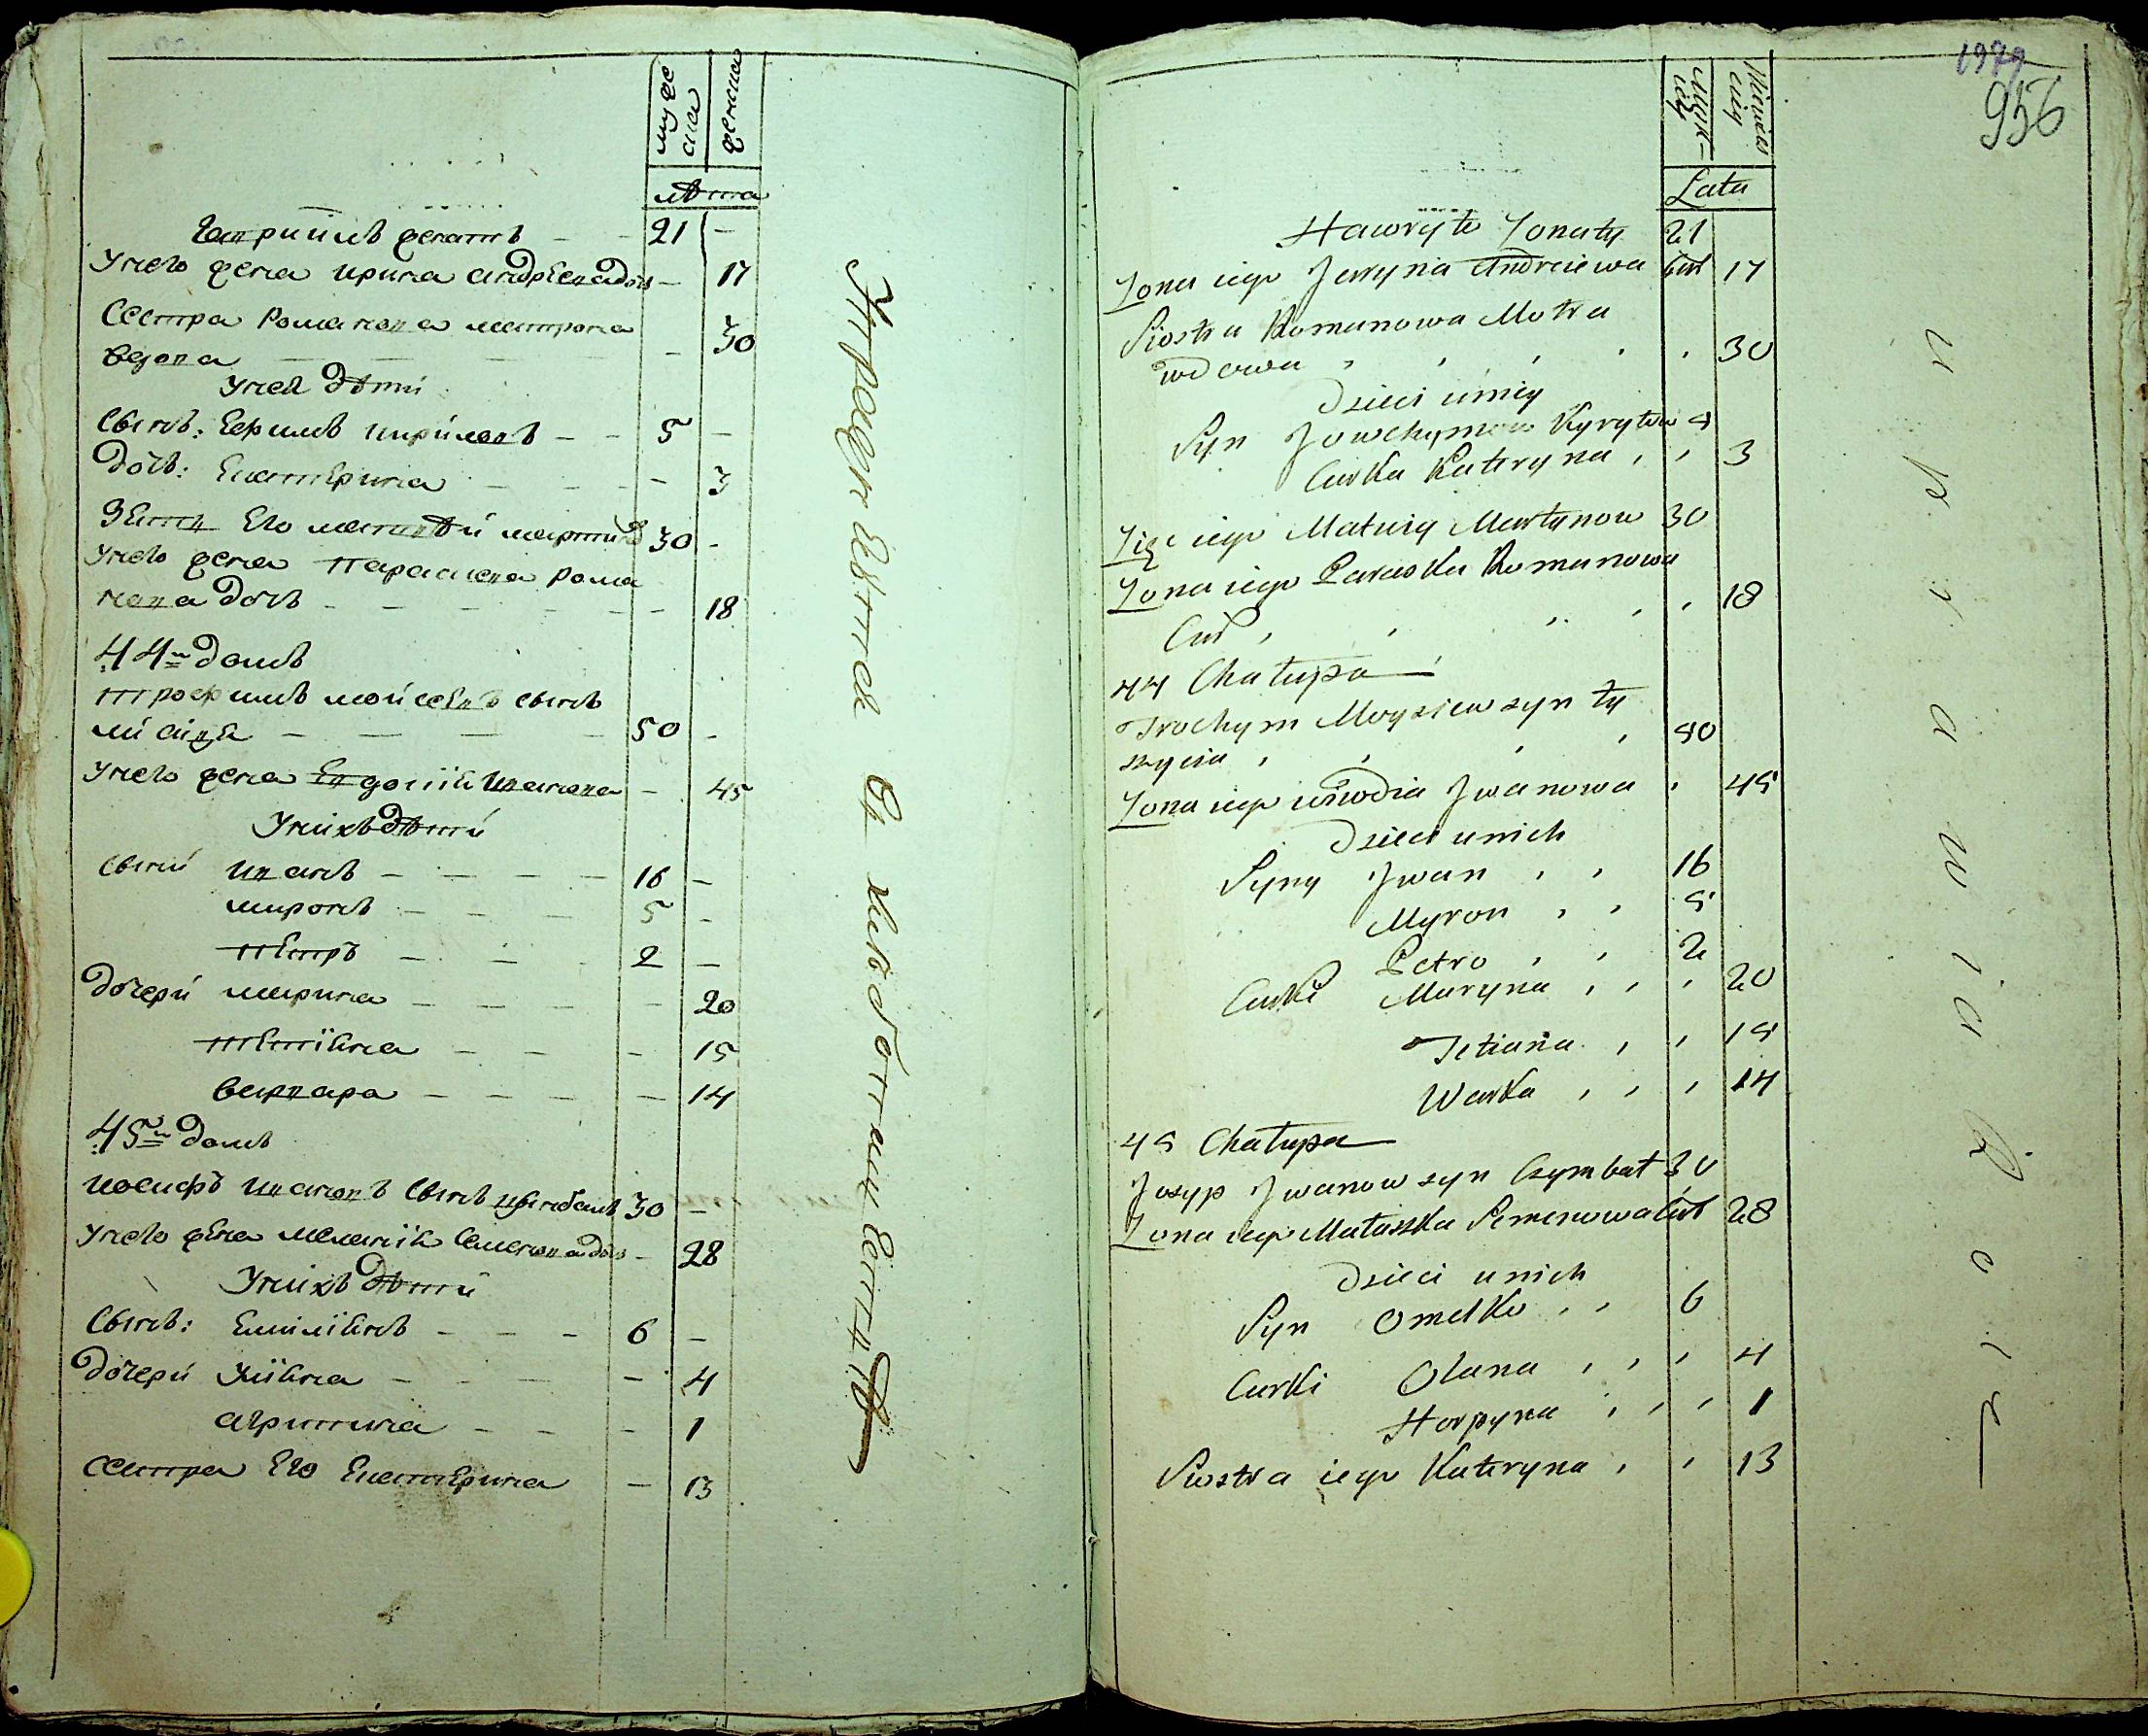 мужеска
женска
лѣта
Гавриилъ женатъ 21
У него жена Ирина Андреева дочь 17
Сестра Романова Матрона
вдова 30
У ней дѣти
Сынъ: Ефимъ Кириловъ 5
Дочь: Екатерина 3
Зять Его Матвѣй Мартинов 30
У него жена Параскева Рома
нова дочь 18
44й домъ
Трофимъ Мойсеевъ сынъ
50
У него жена Евдокия Иванова 45
У нихъ дѣти
Сыни Иванъ 16
Миронъ 5
Петръ 2
Дочери Марина 20
Тетіяна 15
Варвара 14
45й домъ
Иосифъ Ивановъ сынъ Цымбалъ 30
У него жена Меланія Семенова дочь 28
У нихъ дѣти
Сынъ: Емиліянъ 6
Дочери Уліяна 4
Агрипина 1
Сестра Его Екатерина 13
1979
956
Lata
Hawryło Żonaty 21
Żona iego Jaryna Andreiewa Cur 17
Siostra Romanowa Motra
wdowa 30
Dzieci u niey
Syn Jowchym Kyryłow 5
Curka Kateryna 3
Zięć iego Matwiy Martynow 30
Żona iego Paraska Romanowa
Cur 18
44 Chałupa
Trochym Moysiew syn Ły
szycia 50
Żona iego Iwanowa 45
Dzieci u nich
Syny Jwan 16
Myron 5
Petro 2
Curki Maryna 20
Tetiana 15
Warka 14
45 Chałupa
Josyp Jwanow syn Cymbał 30
Żona iego Małaszka Semenowa Cur 28
Dzieci u nich
Syn Omelko 6
Curki Olana 4
Horpyna 1
Siostra iego Kateryna 13